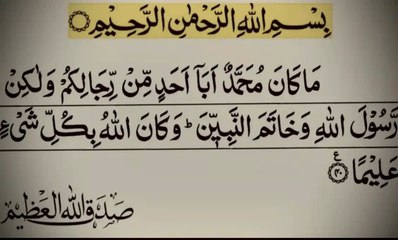 بِسْمِ اللهِ الرَّحْمٰنِ الرَّحِيْمِ
مَا كَانَ مُحَمَّدٌ اَبَآ اَحَدٍ مِّنْ رِّجَالِكُمْ وَلٰكِنْ
رَّسُوْلَ اللهِ وَخَاتَمَ النَّبِيّٖنَ ؕ وَكَانَ اللهُ بِكُلِّ شَيْءٍ
عَلِيْمًا ۴۰ ع
صَدَقَ اللهُ الْعَظِيْمِ